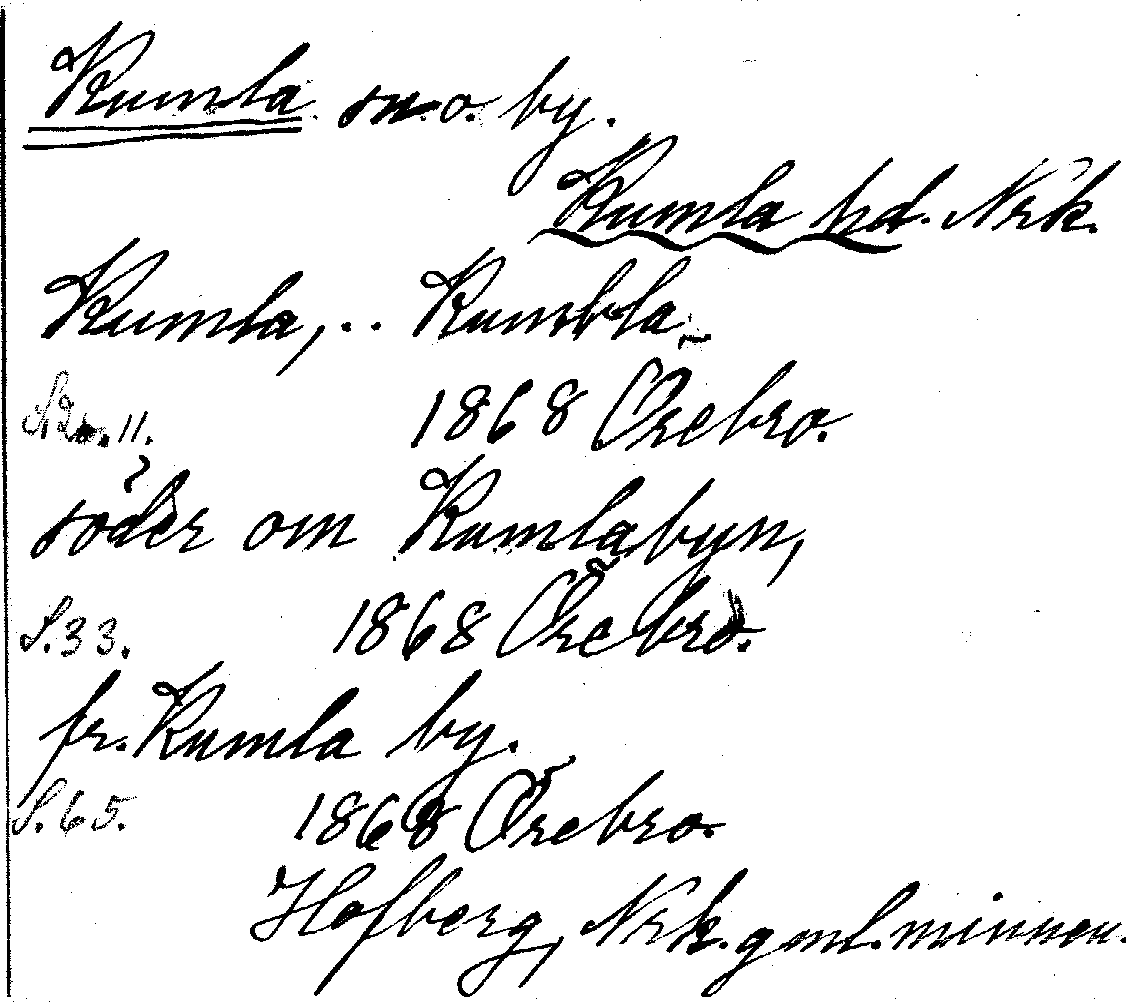 Kumla sn. o. by.
Kumla hd. Nrk.
Kumla, .. Kumbla
1868 Örebro.
S. 11.
söder om Kumlabyn,
S. 33. 1868 Örebro.
fr. Kumla by.
S. 65. 1868 Örebro.
Hofberg, Nrk. gml. minnen.